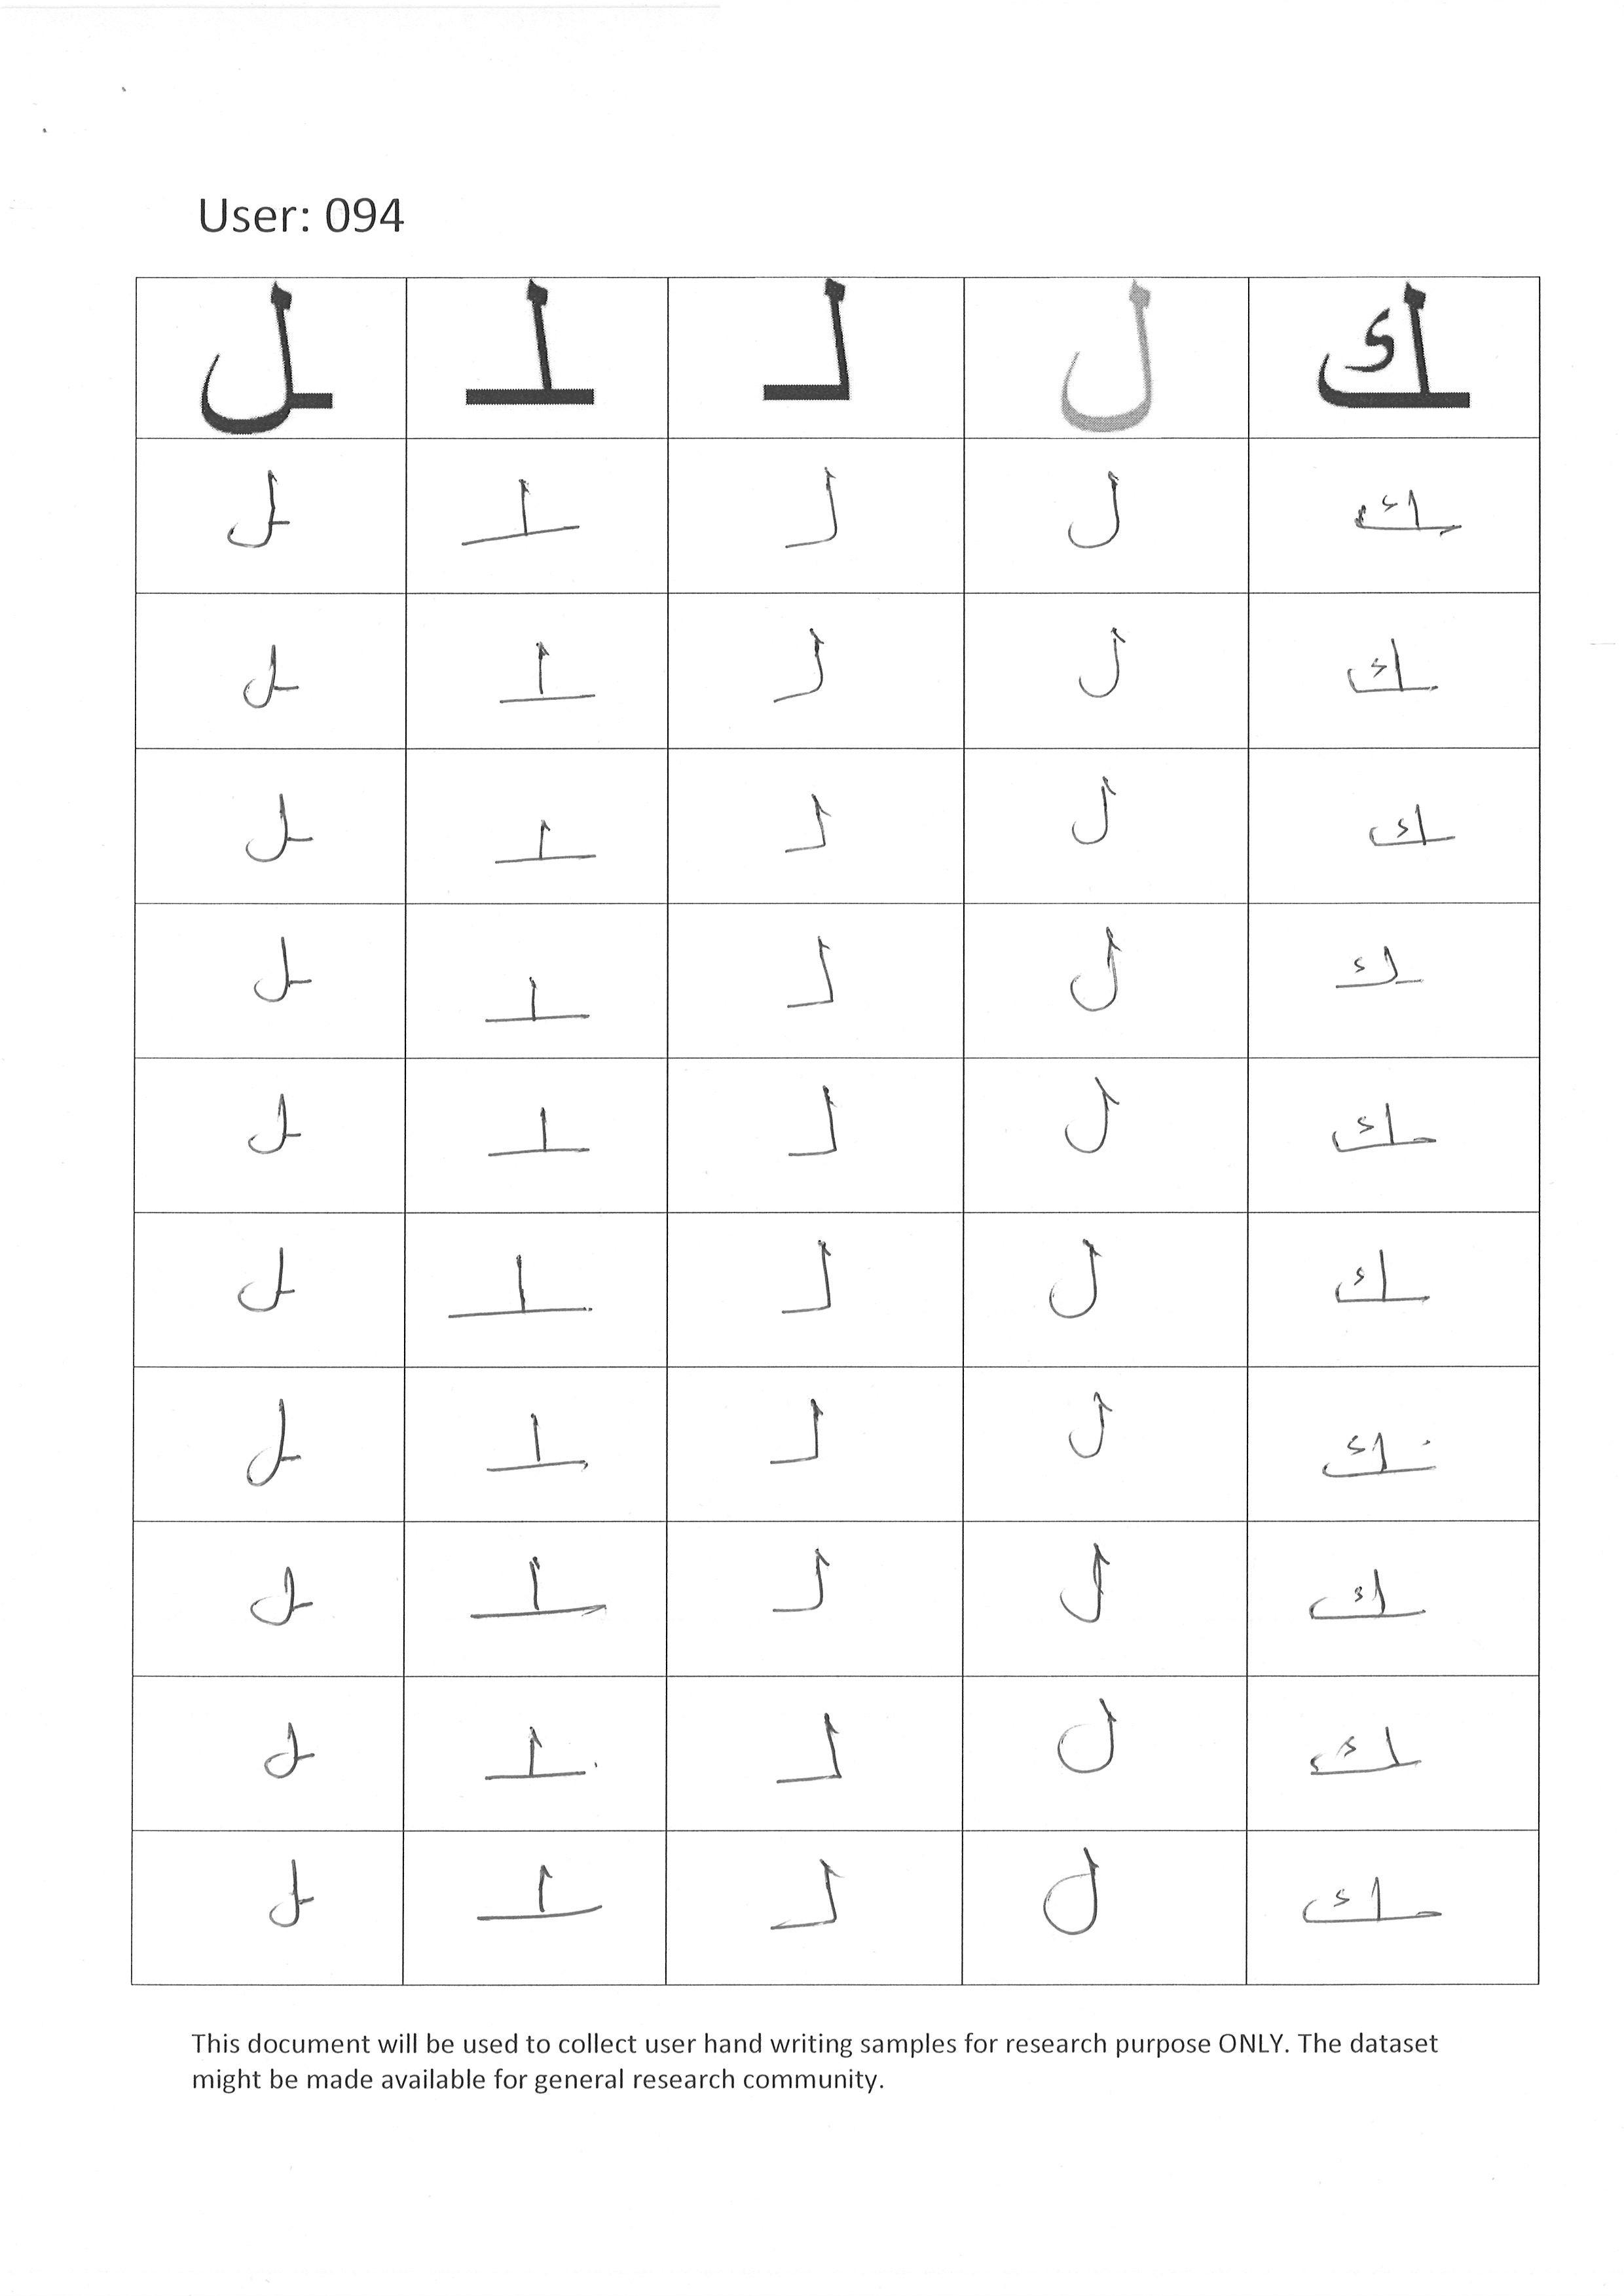 User: 094
ـل ـلـ لـ ل ـك
ـل ـلـ لـ ل ـك
ـل ـلـ لـ ل ـك
ـل ـلـ لـ ل ـك
ـل ـلـ لـ ل ـك
ـل ـلـ لـ ل ـك
ـل ـلـ لـ ل ـك
ـل ـلـ لـ ل ـك
ـل ـلـ لـ ل ـك
ـل ـلـ لـ ل ـك
ـل ـلـ لـ ل ـك
This document will be used to collect user hand writing samples for research purpose ONLY. The dataset
might be made available for general research community.